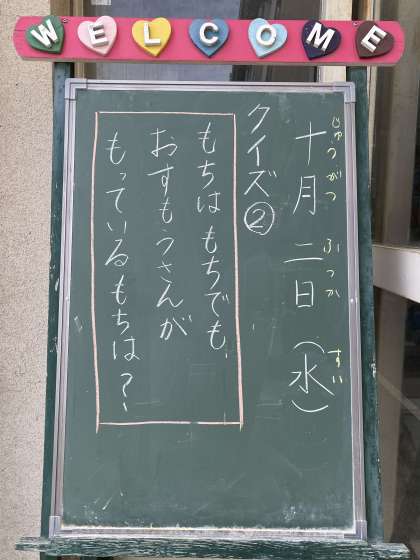 WELCOME
十月二日(水)
じゅうがつ ふつか すい
クイズ②
もちは もちでも
おすもうさんが
もっているもちは?